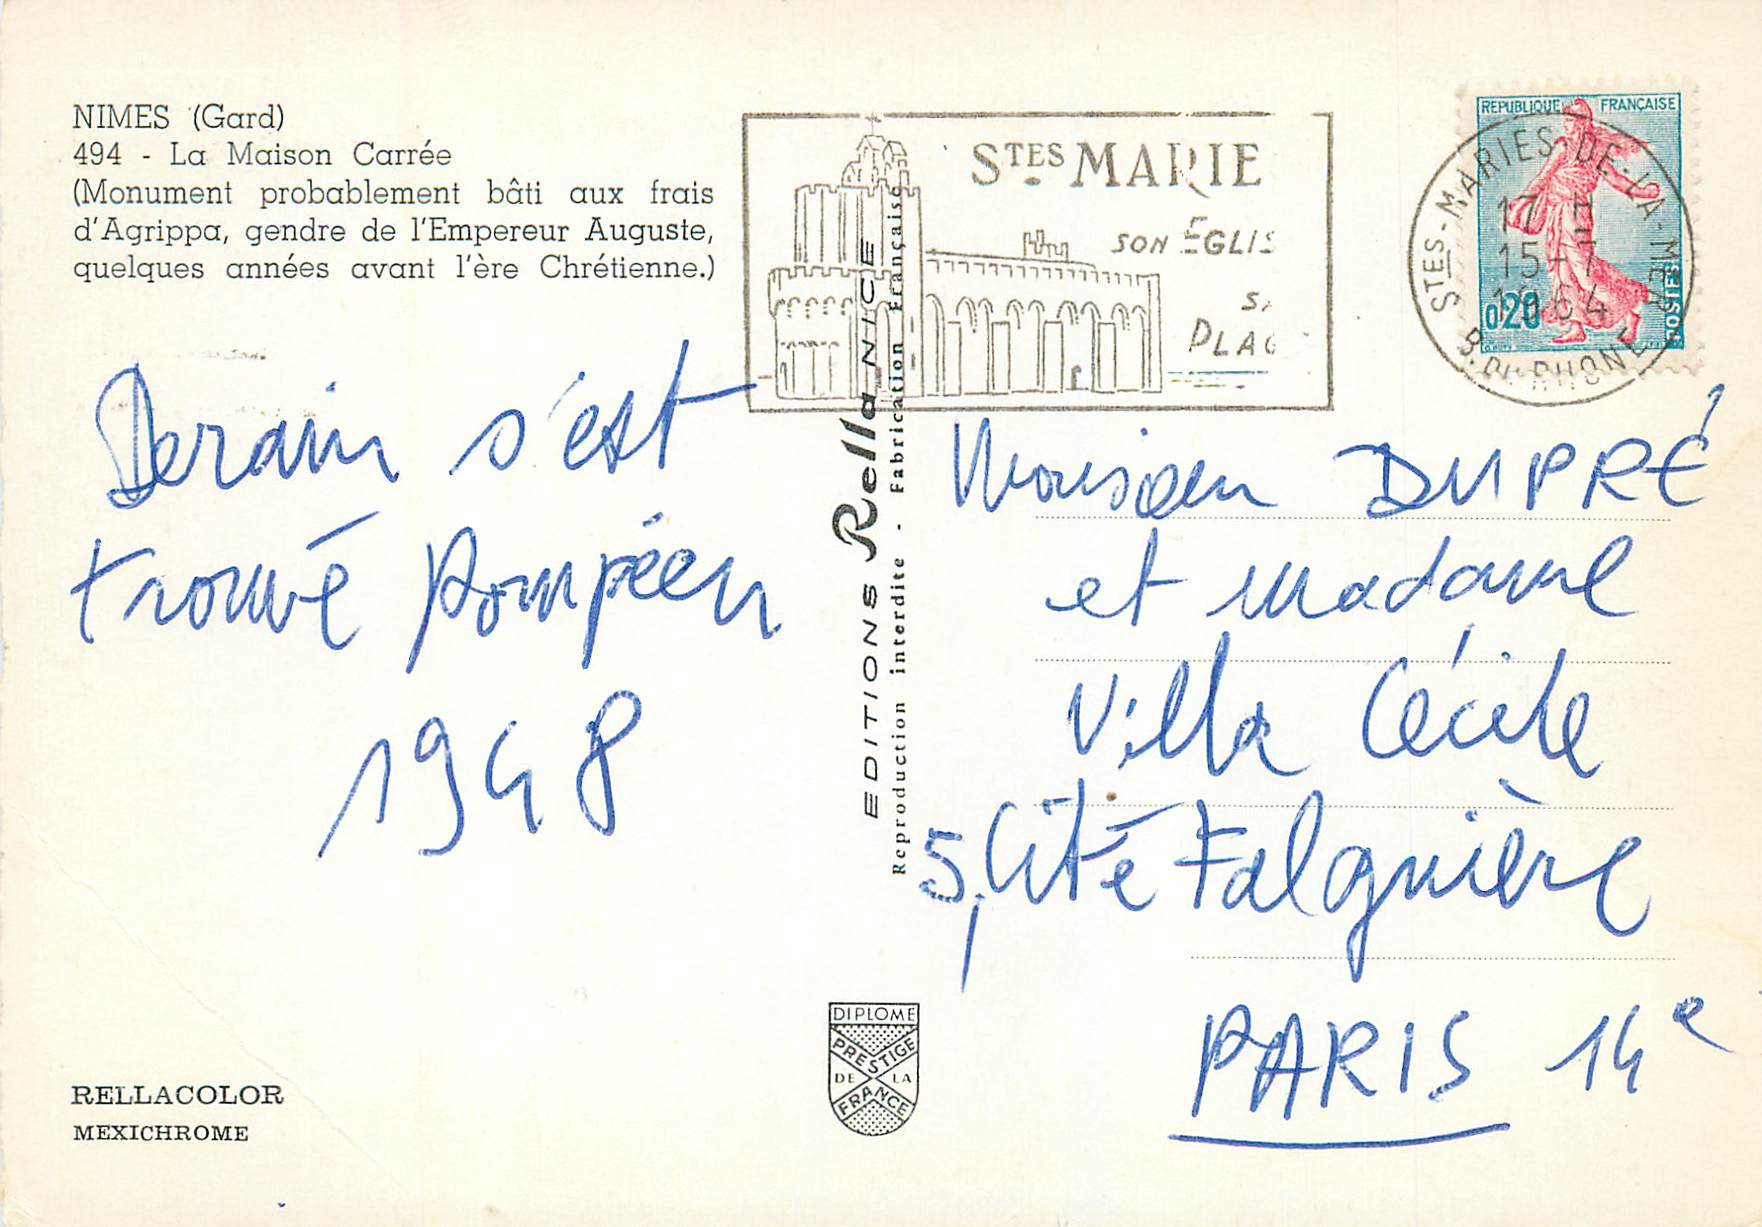 NIMES (Gard)
494 - La Maison Carrée
(Monument probablement bâti aux frais
d'Agrippa, gendre de l'Empereur Auguste,
quelques années avant l'ère Chrétienne.)
Derain s'est
trouvé Pompéien
1948
RELLACOLOR
MEXICHROME
EDITIONS Rella NICE
Reproduction interdite - Fabrication Française
DIPLOME
PRESTIGE
DE LA
FRANCE
STES MARIE
SON EGLIS
SA
PLAG
REPUBLIQUE FRANÇAISE
0,20
POSTES
STES-MARIES-DE-LA-MER
17 H
15-7
1964
B. DU RHONE
Monsieur DUPRÉ
et Madame
Villa Cécile
5, Cité Falguière
PARIS 14e